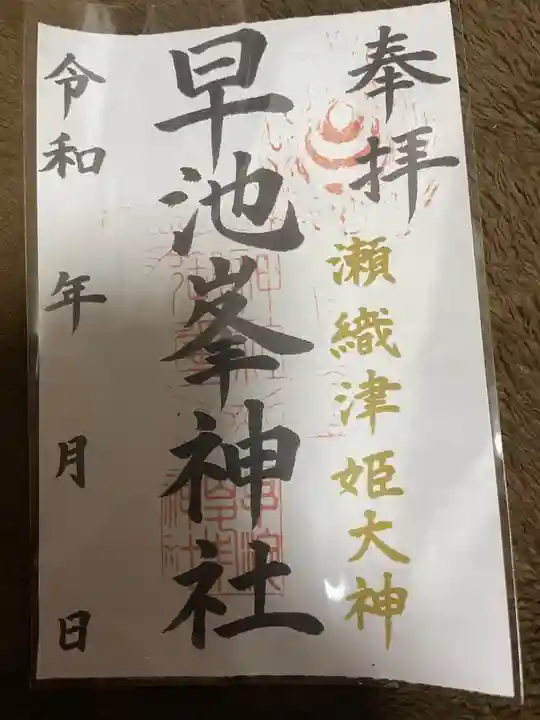 奉拝
瀬織津姫大神
早池峯神社
令和　年　月　日